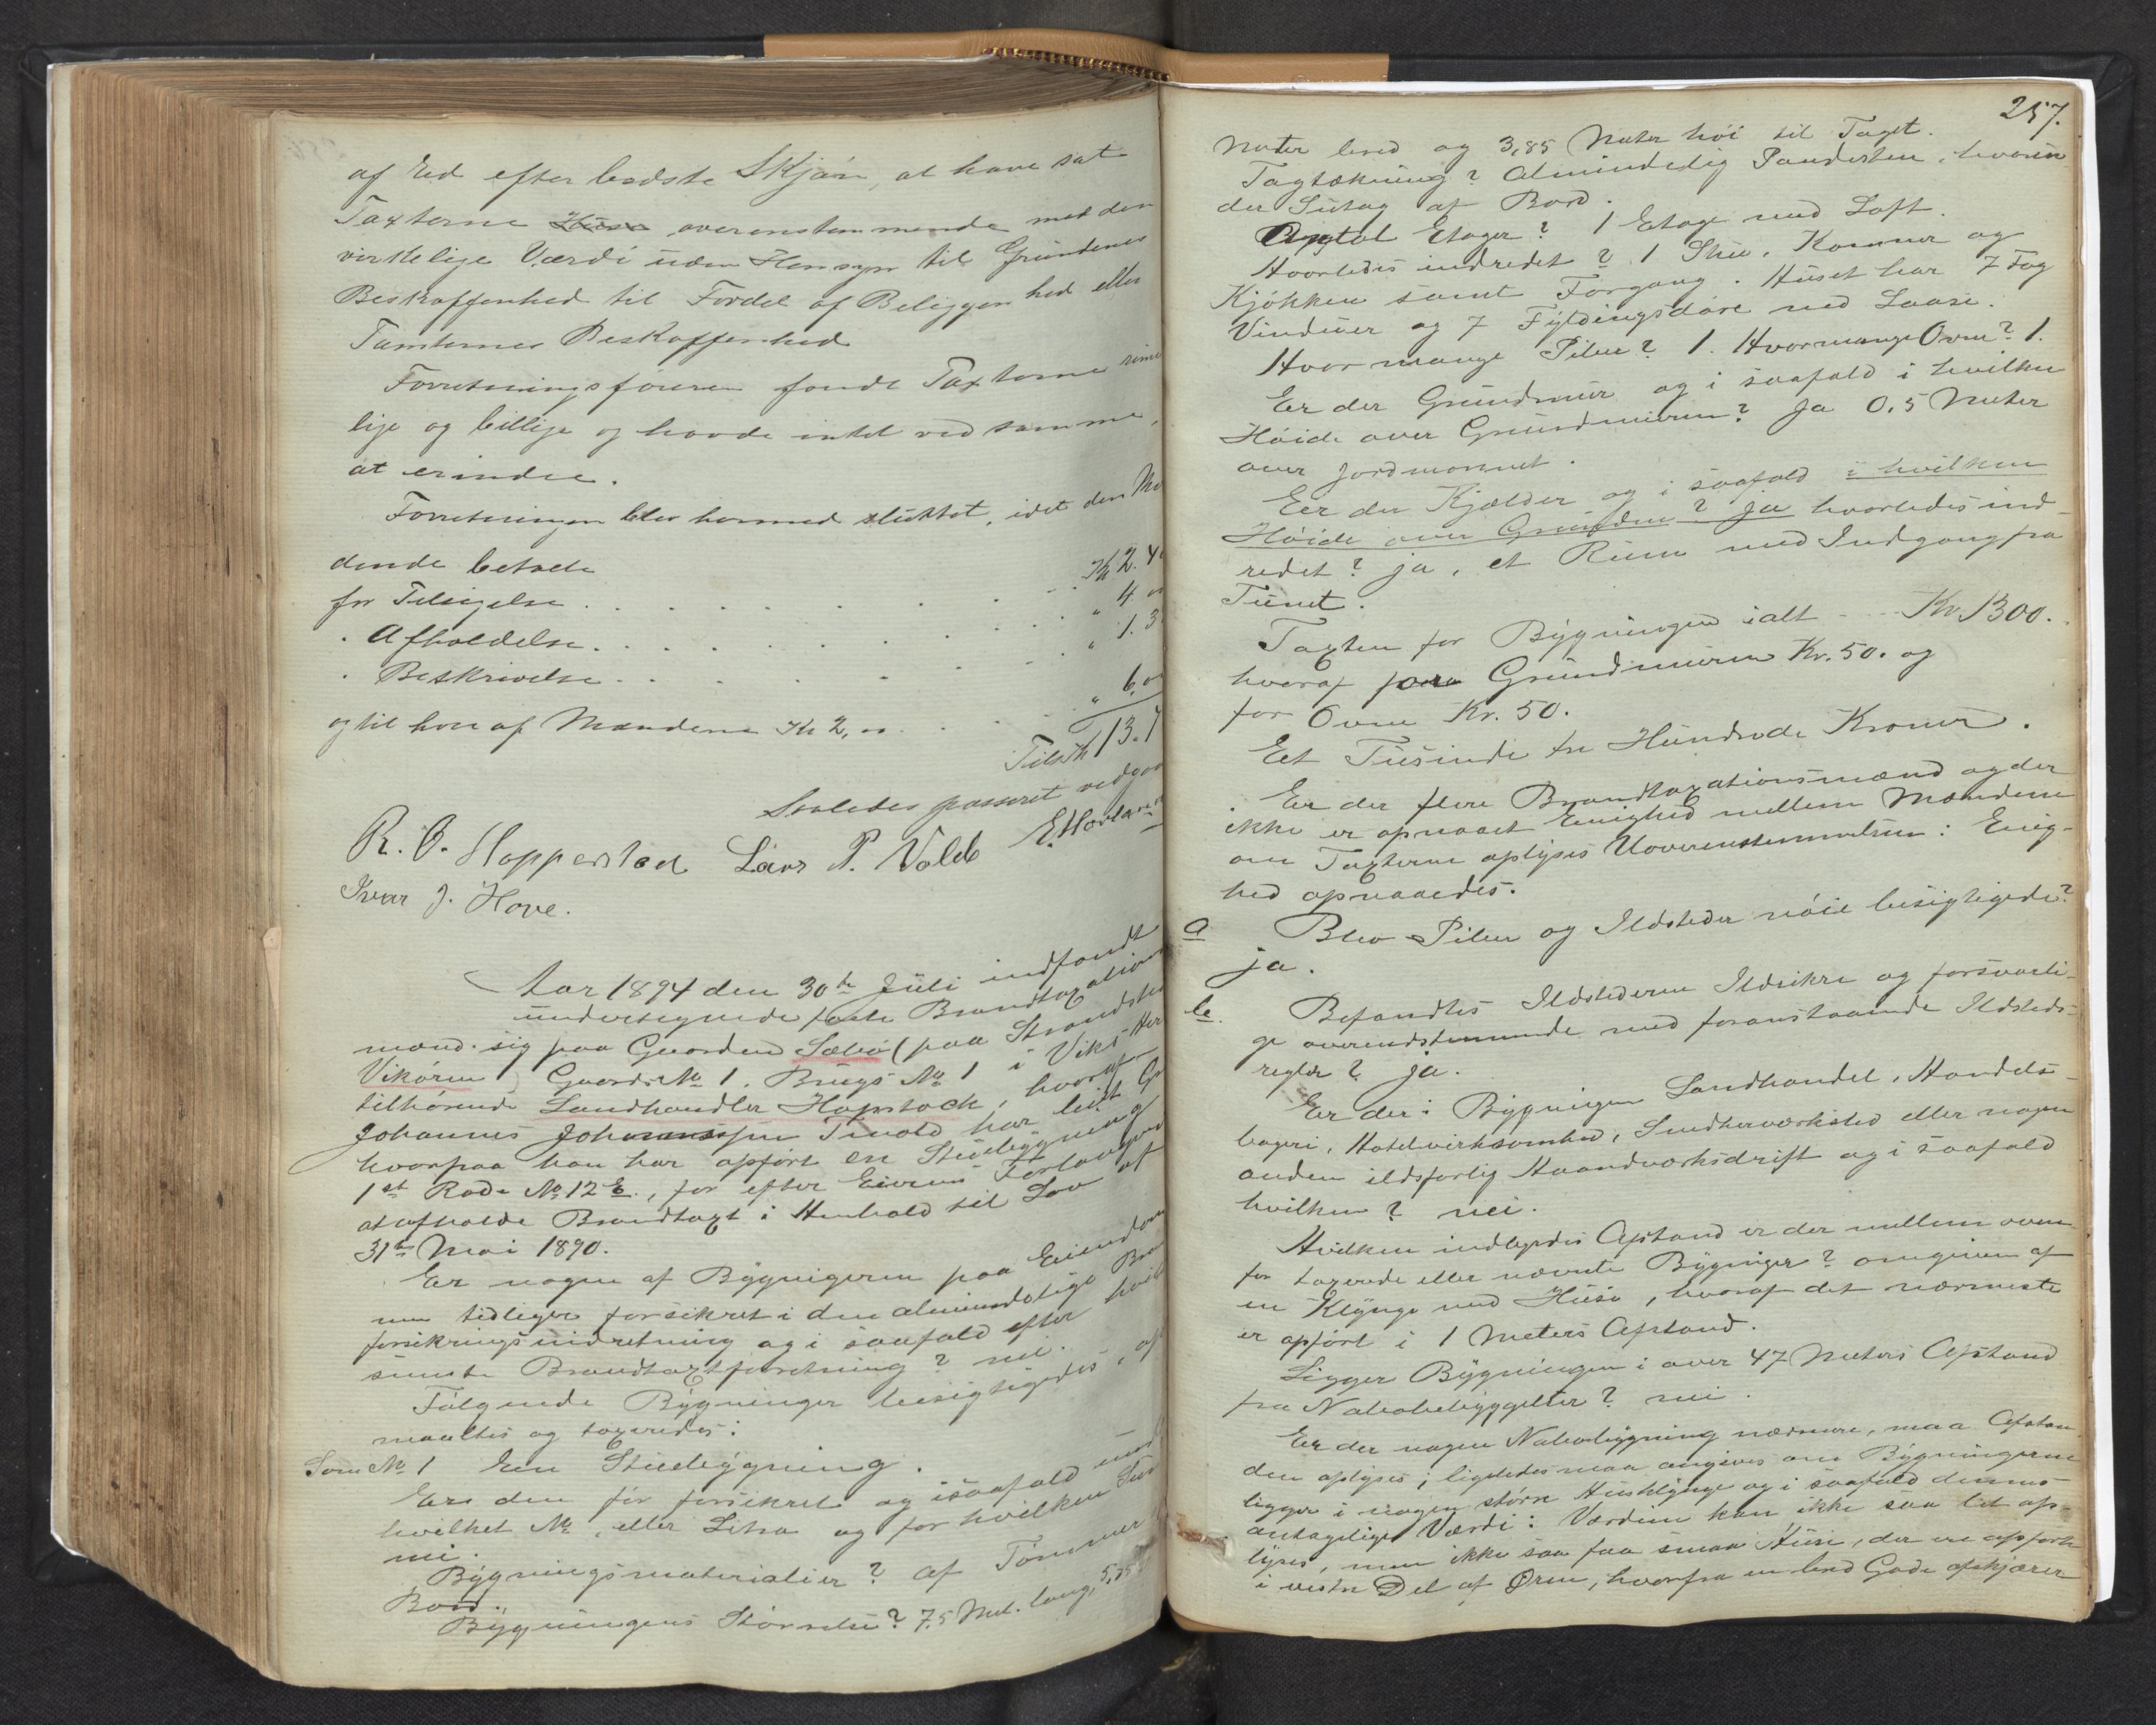 af Ed efter bedste Skjøn, at have sat
Taxterne overensstemmende med den
virkelige Værdi uden Hensyn til Grundenes
Beskaffenhed til Fordel af Beliggenhed eller
Tomternes Beskaffenhed
Forretningsføreren fandt Taxterne rime
lige og billige og havde intet ved samme,
at erindre.
Forretningen blev hermed sluttet, idet den
dende betalte
for Tilsigelse . . . Kr 2.4
. Afholdelse . . . " 4
. Beskrivelse . . . " 1.3
og til hver af Mændene Kr 2, . . . " 6,
Tils Kr 13.7
Saaledes passeret vedgaa
R. O. Hopperstad Lars P. Vold E. Hovla
Ivar J. Hove.
Aar 1894 den 30te Juli indfandt
undertegnede faste Brandtaxations
mænd sig paa Gaarden Sæbø (paa Strandsted
Vikøren) Gaards No 1. Brugs No 1 i Viks Her
tilhørende Landhandler Hopstock, hvoraf
Johannes Johannessen Tuvold har leiet Gr
hvorpaa han har opført en Stuebygning
1st Rode No 12 E., for efter Eierens Forlangend
at afholde Brandtaxt i Henhold til Lov af
31te Mai 1890.
Er nogen af Bygnigerne paa Eiendom
men tidligere forsikret i den almindelige Bran
forsikringsindretning og i saafald efter hvil
seneste Brandtaxtforretning? nei.
Følgende Bygninger besigtigedes, op
maaltes og taxeredes:
Som No 1 En Stuebygning.
Er den før forsikret og isaafald und
hvilket No. eller Litra og for hvilken Sum
nei.
Bygningsmaterialier? af Tømmer
Bord.
Bygningens Størrelse? 7,5 Met. lang, 5,35
257.
Meter bred og 3,85 Meter høi til Taget.
Tagtækning? Almindelig Pandesten, hvorun
der Sutag af Bord.
Antal Etager? 1 Etage med Loft.
Hvorledes indredet? 1 Stue, Kammer og
Kjøkken samt Forgang. Huset har 7 Fag
Vinduer og 7 Fyldingsdøre med Laase.
Hvor mange Piber? 1. Hvormange Ovne? 1.
Er der Grundmur og i saafald i hvilken
Høide over Grundmuren? Ja 0.5 Meter
over Jordmonnet.
Er der Kjælder og i saafald i hvilken
Høide over Grunden? Ja hvorledes ind-
redet? ja, et Rum med Indgang fra
Tunet.
Taxten for Bygningen ialt - - - Kr. 1300.
hvoraf for Grundmuren Kr. 50. og
for Ovne Kr. 50.
Et Tusinde tre Hundrede Kroner.
Er der flere Brandtaxationsmænd og der
ikke er opnaaet Enighed mellem Mændene
om Taxterne oplyses Uoverenstemmelsen: Enig-
hed opnaaedes.
a Blev Piber og Ildsteder nøie besigtigede?
ja.
b. Befandtes Ildstederne Ildsikre og forsvarli-
ge overensstemmende med foranstaaende Ildsteds-
regler? ja.
Er der i Bygningen Landhandel, Handels-
bageri, Hotelvirksomhed, Snedkerværksted eller nogen
anden ildsfarlig Haandværksdrift og i saafald
hvilken? nei.
Hvilken indbyrdes Afstand er der mellem oven-
for taxerede eller nævnte Bygninger? omgiven af
en Klynge med Huse, hvoraf det nærmeste
er opført i 1 Meters Afstand.
Ligger Bygningen i over 47 Meters Afstand
fra Nabobebyggelser? nei.
Er der nogen Nabobygning nærmere, maa Afstan
den oplyses; ligeledes maa angives om Bygningerne
ligger i nogen større Husklynge og i saafald dennes
antagelige Værdi: Værdien kan ikke saa let op-
lyses, men ikke saa faa smaa Huse, der ere opførte
i vestre Del af Øren, hvorfra en bred Gade afskjærer